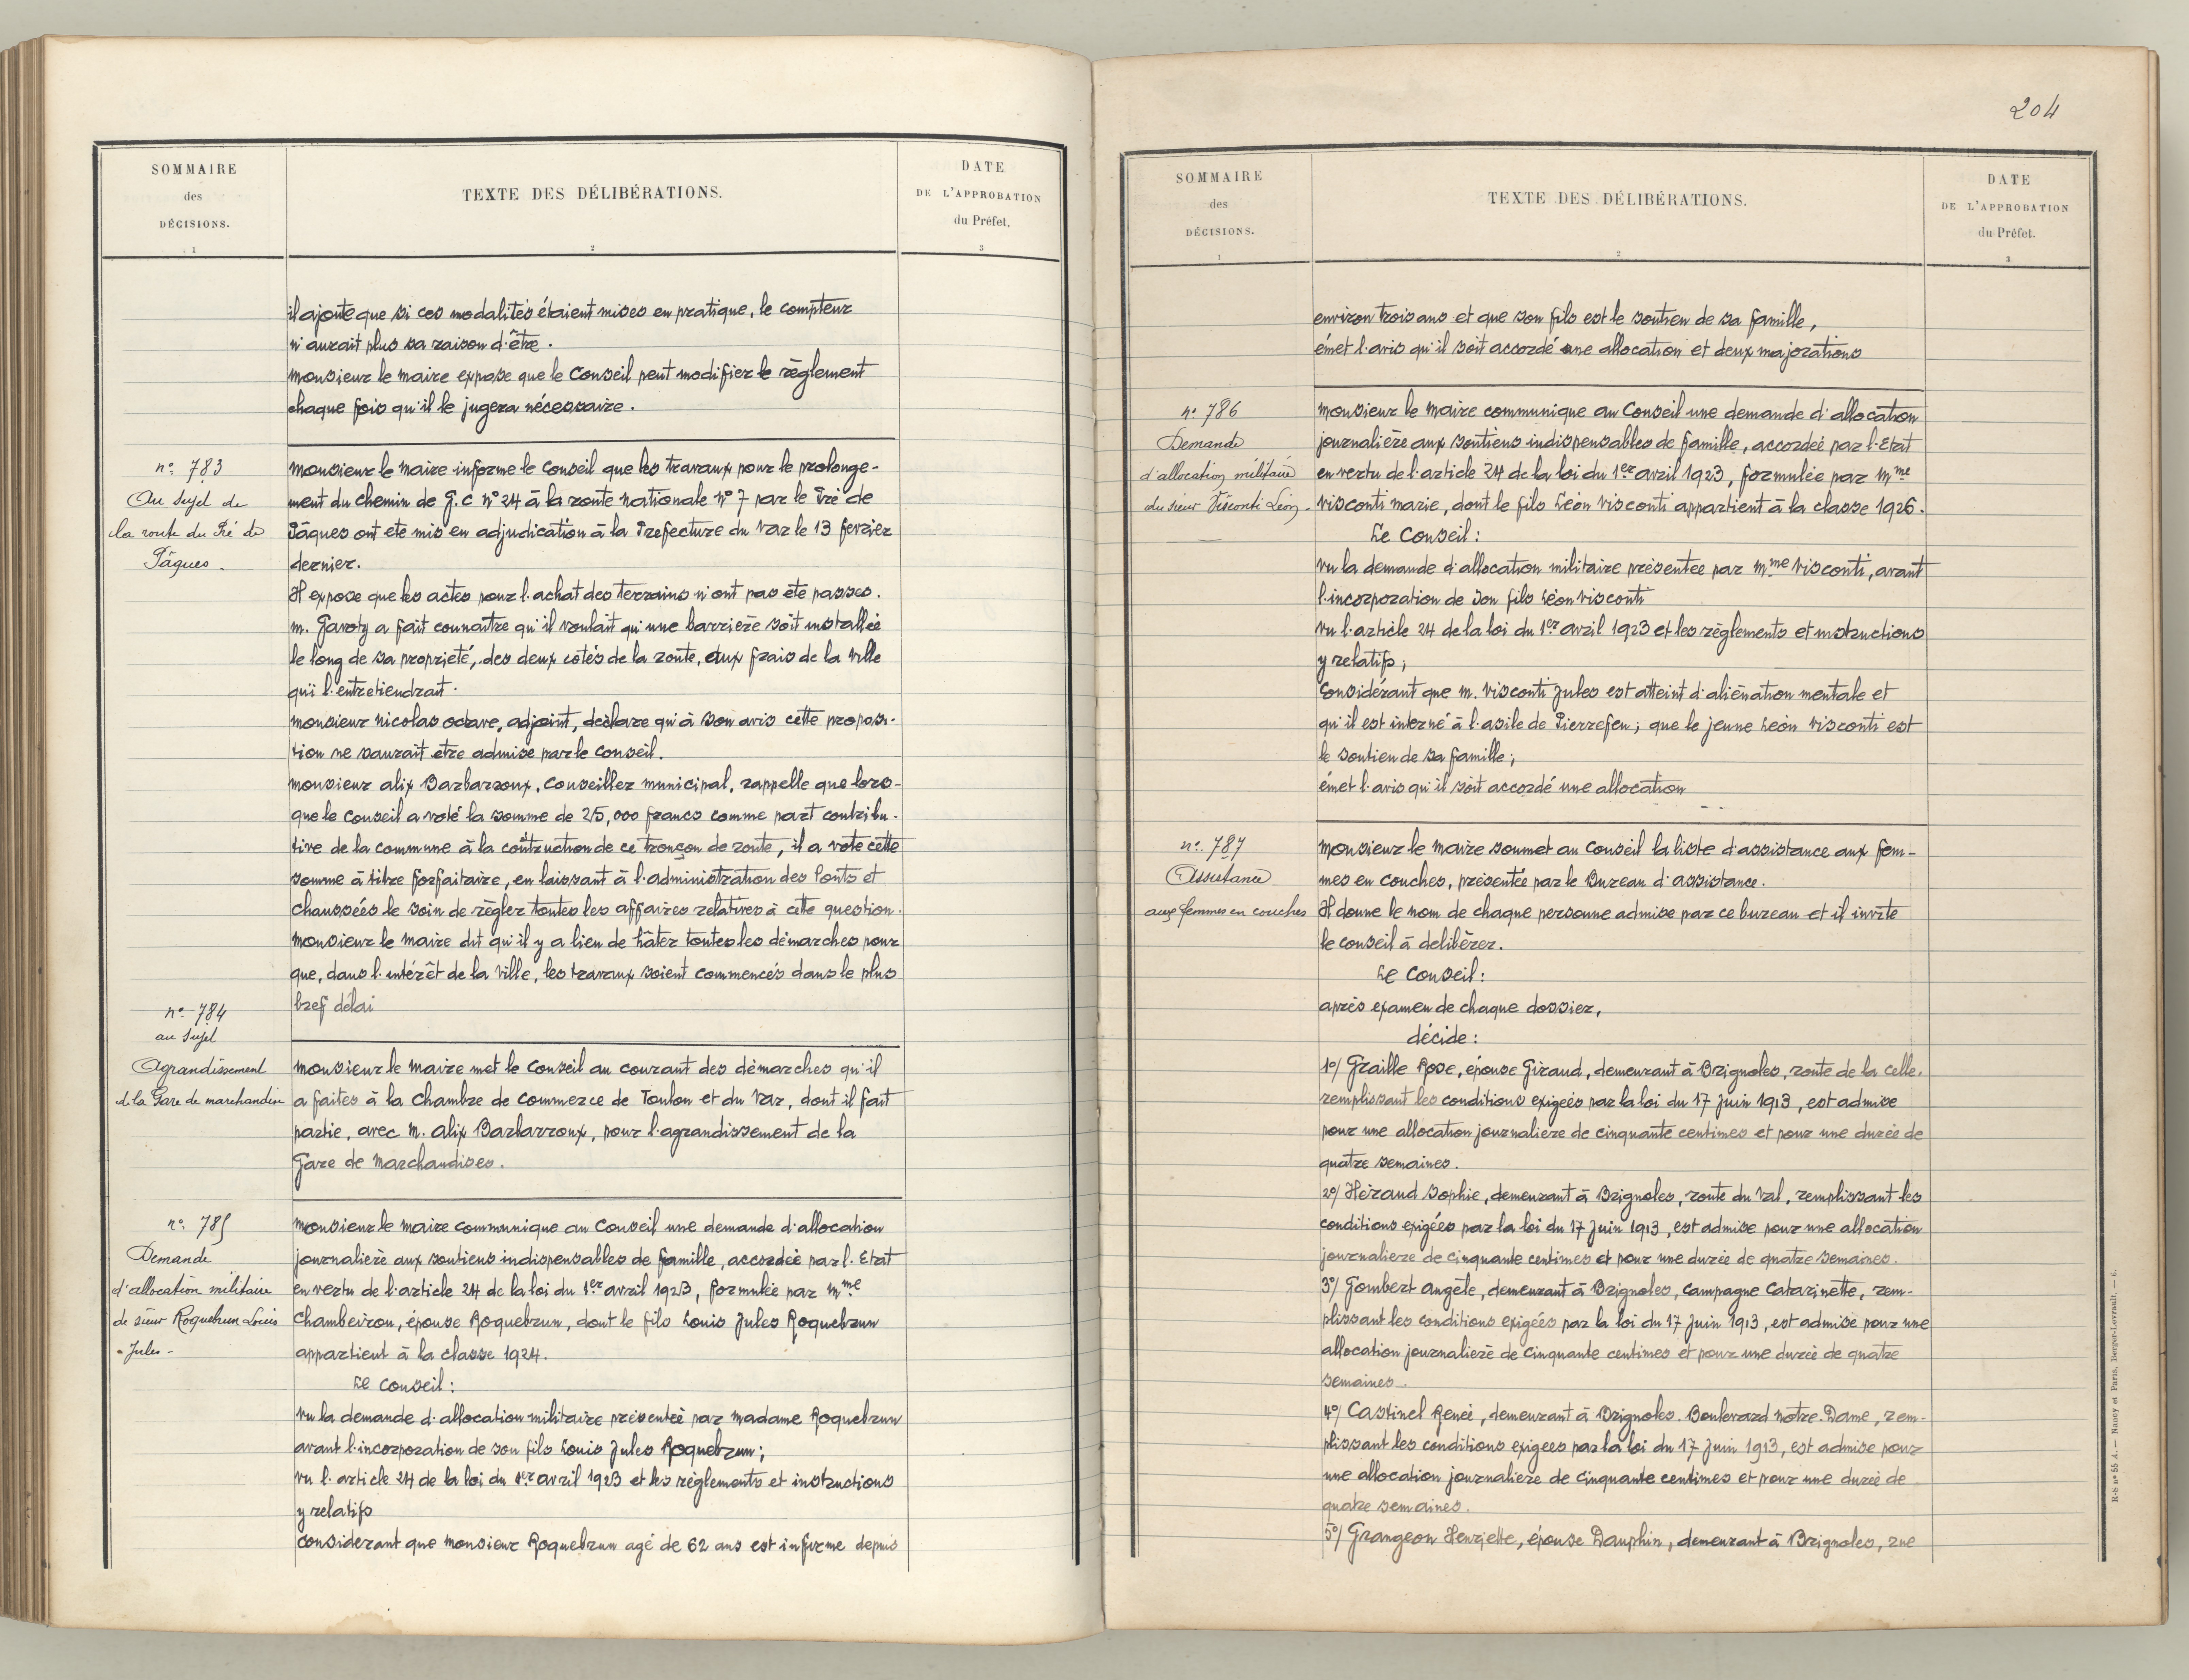 SOMMAIRE
des
DÉCISIONS.
1
TEXTE DES DÉLIBÉRATIONS.
2
DATE
DE L'APPROBATION
du Préfet.
3
il ajoute que si ces modalités étaient mises en pratique, le compteur
n'aurait plus sa raison d'être.
monsieur le maire expose que le Conseil peut modifier le règlement
chaque fois qu'il le jugera nécessaire.
n° 783
Au sujet de
la route du Pré de
Pâques.
monsieur le maire informe le Conseil que les travaux pour le prolonge-
ment du chemin de G.C n° 24 à la route nationale n° 7 par le Pré de
Pâques ont ete mis en adjudication à la Prefecture du Var le 13 fevrier
dernier.
Il expose que les actes pour l'achat des terrains n'ont pas ete passes.
m. Gavoty a fait connaitre qu'il voulait qu'une barriere soit installée
le long de sa proprieté, des deux cotés de la route, aux frais de la Ville
qui l'entretiendrait.
monsieur nicolas octave, adjoint, declare qu'à son avis cette proposi-
tion ne saurait etre admise par le Conseil.
monsieur alix Barbarroux, Conseiller municipal, rappelle que lors-
que le Conseil a voté la somme de 25,000 francs comme part contribu-
tive de la commune à la côtruction de ce tronçon de route, il a vote cette
somme à titre forfaitaire, en laissant à l'administration des Ponts et
chaussées le soin de règler toutes les affaires relatives à cette question.
monsieur le maire dit qu'il y a lieu de hâter toutes les démarches pour
que, dans l'intérêt de la Ville, les travaux soient commencés dans le plus
bref délai
n° 784
au sujet
Agrandissement
d la Gare de marchandise
monsieur le maire met le Conseil au courant des démarches qu'il
a faites à la Chambre de Commerce de Toulon et du Var, dont il fait
partie, avec m. alix Barbarroux, pour l'agrandissement de la
Gare de Marchandises.
n° 785
Demande
d'allocation militaire
de sieur Roquebrun Louis
Jules -
monsieur le maire communique au Conseil une demande d'allocation
journalière aux soutiens indispensables de famille, accordée par l'Etat
en vertu de l'article 24 de la loi du 1er avril 1923, formulée par mme
Chambeiron, épouse Roquebrun, dont le fils Louis Jules Roquebrun
appartient à la classe 1924.
Le Conseil :
vu la demande d'allocation militaire présentée par madame Roquebrun
avant l'incorporation de son fils Louis Jules Roquebrun ;
vu l'article 24 de la loi du 1er avril 1923 et les règlements et instructions
y relatifs
considerant que monsieur Roquebrun agé de 62 ans est infirme depuis
204
SOMMAIRE
des
DÉCISIONS.
1
TEXTE DES DÉLIBÉRATIONS.
2
DATE
DE L'APPROBATION
du Préfet.
3
environ trois ans et que son fils est le soutien de sa famille,
émet l'avis qu'il soit accordé une allocation et deux majorations
n° 786
Demande
d'allocation militaire
du sieur Visconti Léon -
monsieur le maire communique au Conseil une demande d'allocation
journalière aux soutiens indispensables de famille, accordée par l'Etat
en vertu de l'article 24 de la loi du 1er avril 1923, formulée par mme
visconti marie, dont le fils Léon visconti appartient à la classe 1926.
Le Conseil :
vu la demande d'allocation militaire présentée par mme visconti, avant
l'incorporation de son fils Léon visconti
vu l'article 24 de la loi du 1er avril 1923 et les règlements et instructions
y relatifs ;
considérant que m. visconti Jules est atteint d'aliénation mentale et
qu'il est interné à l'asile de Pierrefeu ; que le jeune Léon visconti est
le soutien de sa famille ;
émet l'avis qu'il soit accordé une allocation
n° 787
Assistance
aux femmes en couches
monsieur le maire soumet au Conseil la liste d'assistance aux fem-
mes en couches, présentée par le Bureau d'assistance.
Il donne le nom de chaque personne admise par ce bureau et il invite
le conseil à delibérer.
Le Conseil :
après examen de chaque dossier,
décide :
1°/ Graille Rose, épouse Giraud, demeurant à Brignoles, route de la Celle,
remplissant les conditions exigées par la loi du 17 Juin 1913, est admise
pour une allocation journaliere de cinquante centimes et pour une durée de
quatre semaines.
2°/ Héraud Sophie, demeurant à Brignoles, route du Val, remplissant les
conditions exigées par la loi du 17 Juin 1913, est admise pour une allocation
journaliere de cinquante centimes et pour une durée de quatre semaines.
3°/ Gombert angèle, demeurant à Brignoles, campagne Catarinette, rem-
plissant les conditions exigées par la loi du 17 Juin 1913, est admise pour une
allocation journalière de cinquante centimes et pour une durée de quatre
semaines.
4°/ Castinel Renée, demeurant à Brignoles. Boulevard Notre-Dame, rem-
plissant les conditions exigees par la loi du 17 Juin 1913, est admise pour
une allocation journaliere de cinquante centimes et pour une durée de
quatre semaines.
5°/ Grangeon Henriette, épouse Dauphin, demeurant à Brignoles, rue
R-S n° 55 A. — Nancy et Paris, Berger-Levrault. — 6.